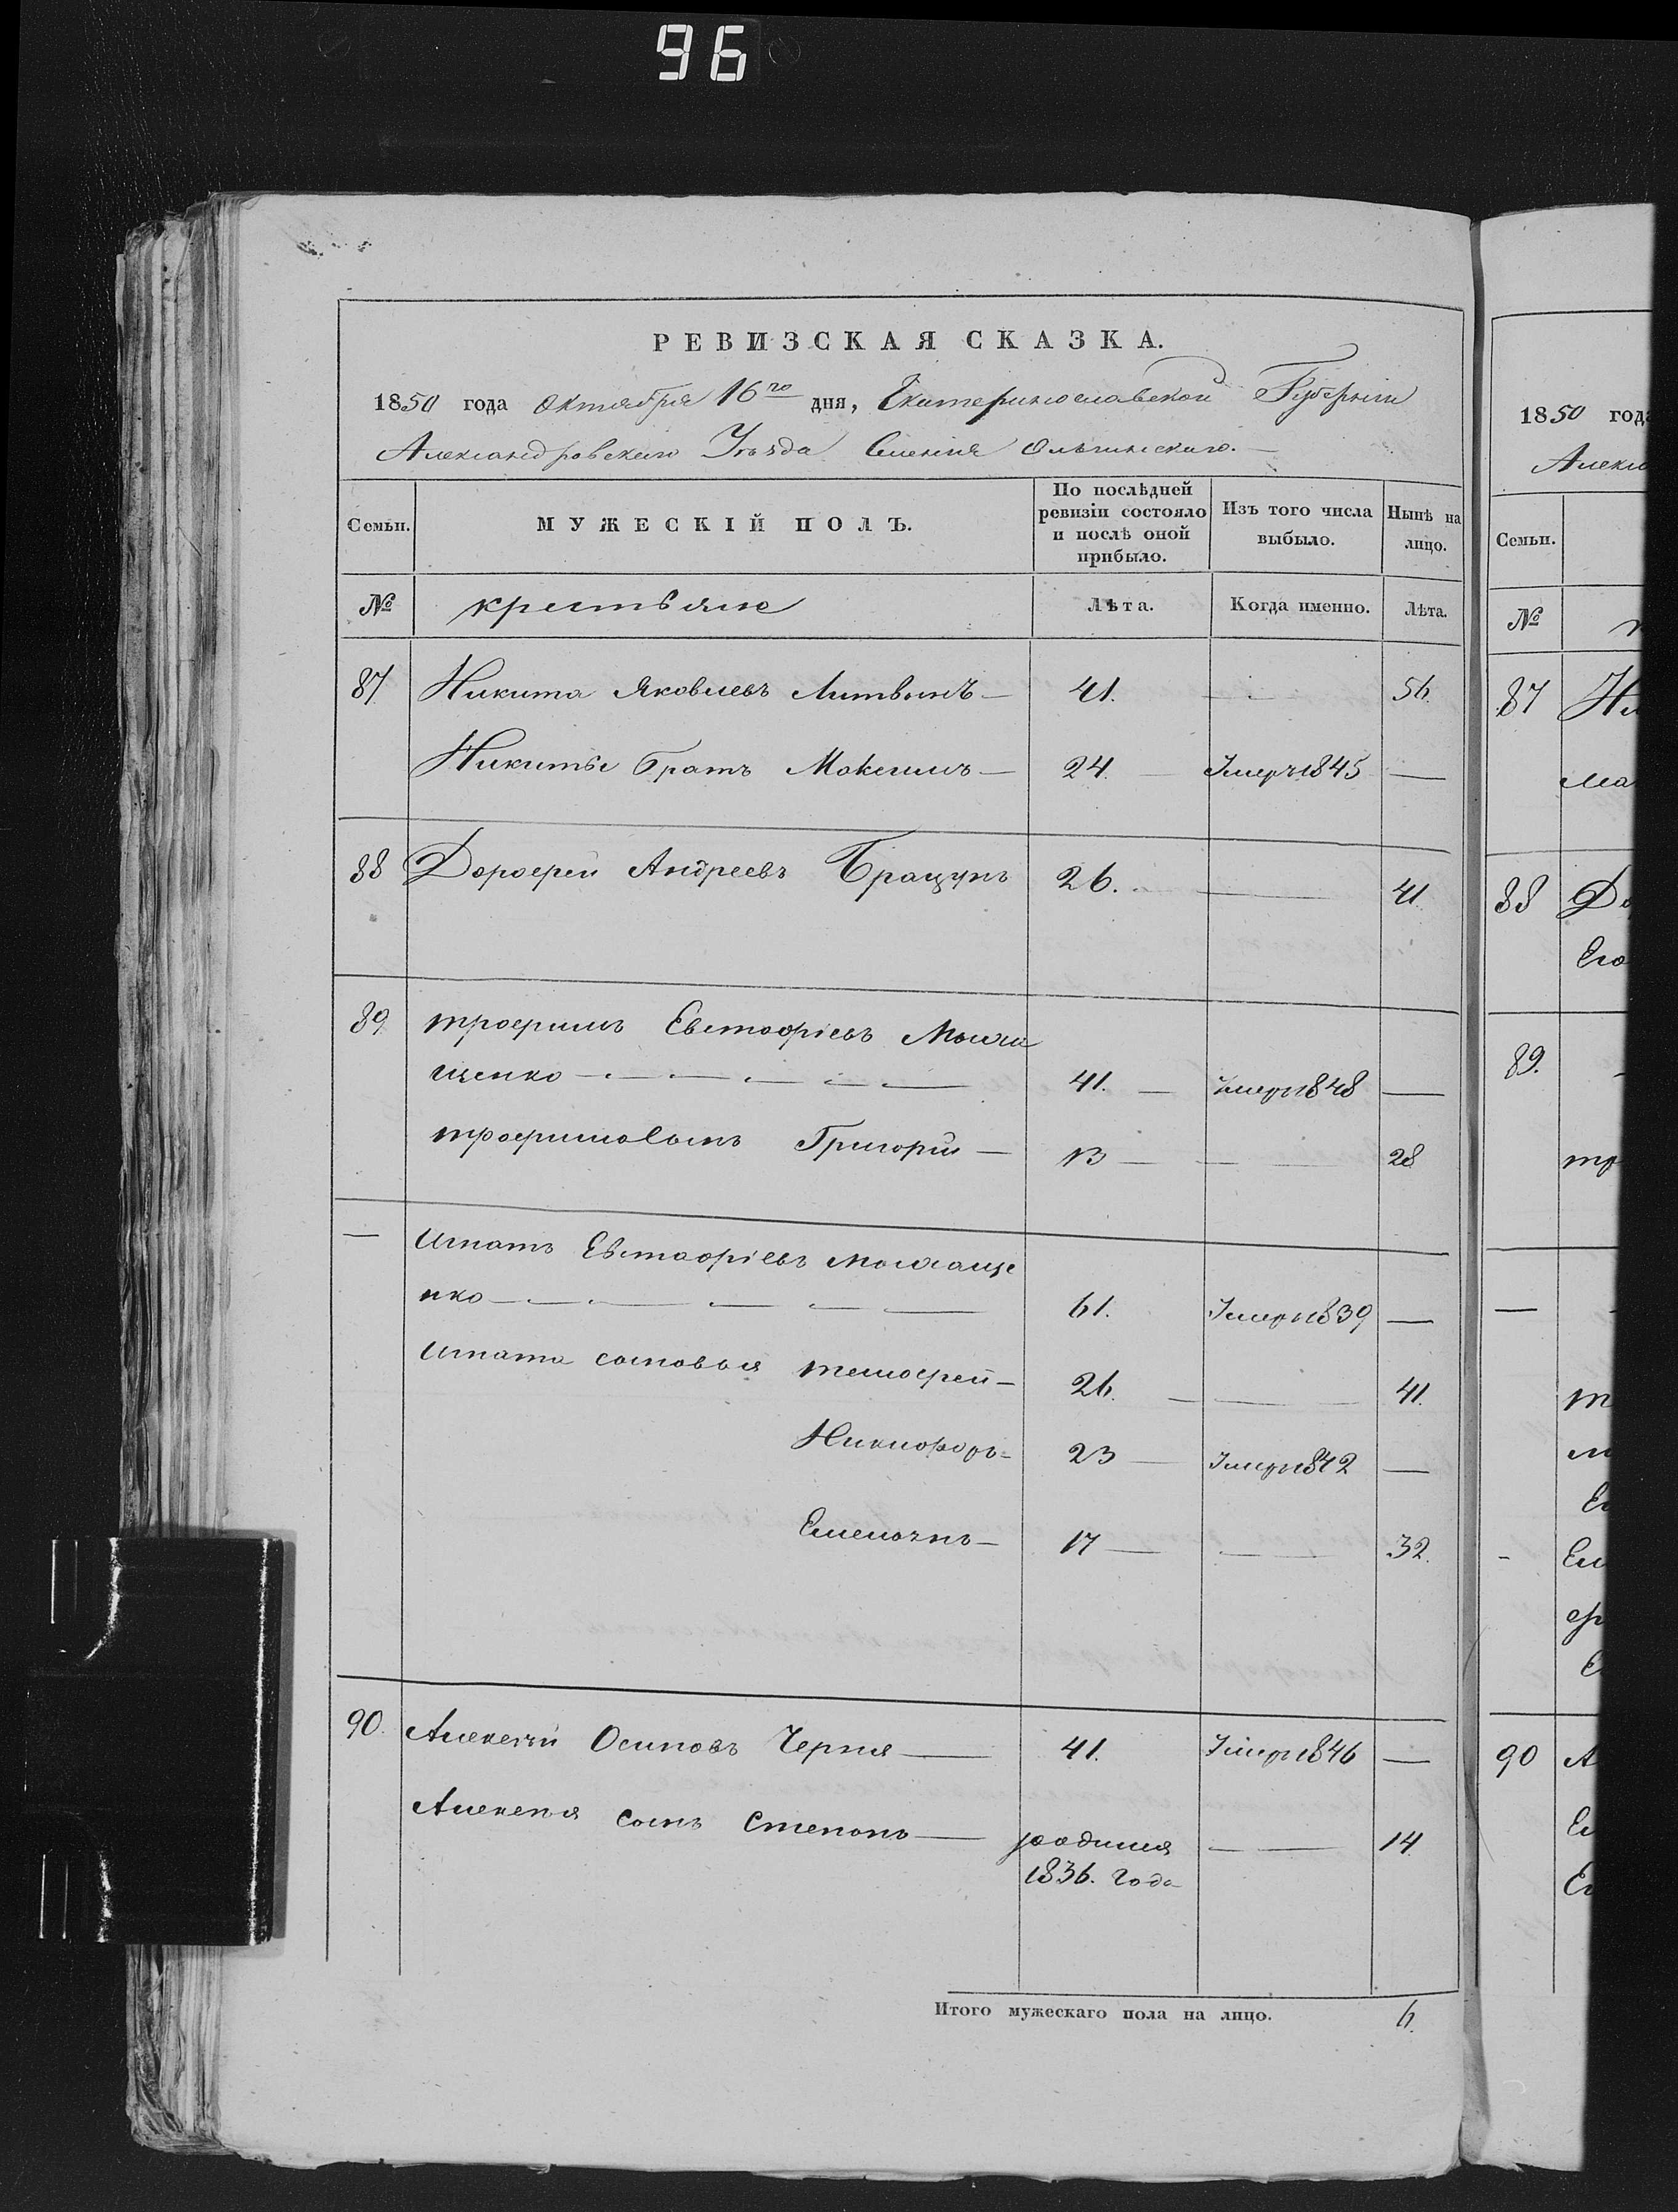 96
РЕВИЗСКАЯ СКАЗКА.
1850 года Октября 16го дня, Екатеринославской Губерніи
Александровскаго Уѣзда Селенія Ольгинскаго.—
Семьи. МУЖЕСКІЙ ПОЛЪ. По послѣдней ревизіи состояло и послѣ оной прибыло. Изъ того числа выбыло. Нынѣ на лицо.
№ крестьяне Лѣта. Когда именно. Лѣта.
87 Никита Яковлевъ Литвинъ— 41. — 56.
Никиты братъ Максимъ— 24. Умеръ 1845 —
88 Дорофей Андреевъ Бращунъ 26. — 41
89 трофимъ Евстафіевъ
щенко — 41. — Умеръ 1848 —
трофимовъ сынъ Григорій — 13 — — 28
— Игнатъ Евстафіевъ
нко — 61. Умеръ 1839 —
Игната сыновья тимофей— 26. — 41.
Никифоръ- 23 — Умеръ 1842 —
Емельянъ— 17 — — 32.
90. Алексей Осиповъ Черня— 41. Умеръ 1846 —
Алексея сынъ Степанъ— родился — 14
1836. года
Итого мужескаго пола на лицо. 6.
1850 года
Семьи.
№
87
88
Его
89.
—
90